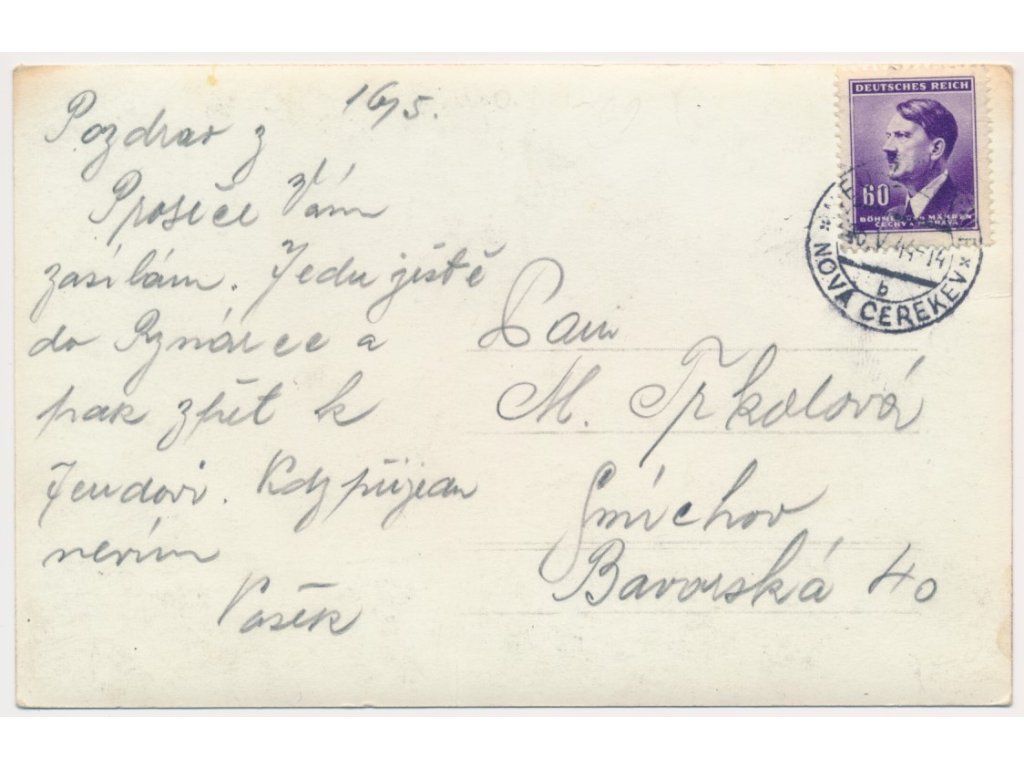 16/5.
Pozdrav z
Proseče Vám
zasílám. Jedu ještě
do Rynárce a
pak zpět k
Jendovi. Kdy přijedu
nevím
Vašek
Paní
M. Trkolová
Smíchov
Bavorská 40
DEUTSCHES REICH
60
BÖHMEN UND MÄHREN
ČECHY A MORAVA
V. 44-14
b
NOVÁ CEREKEV